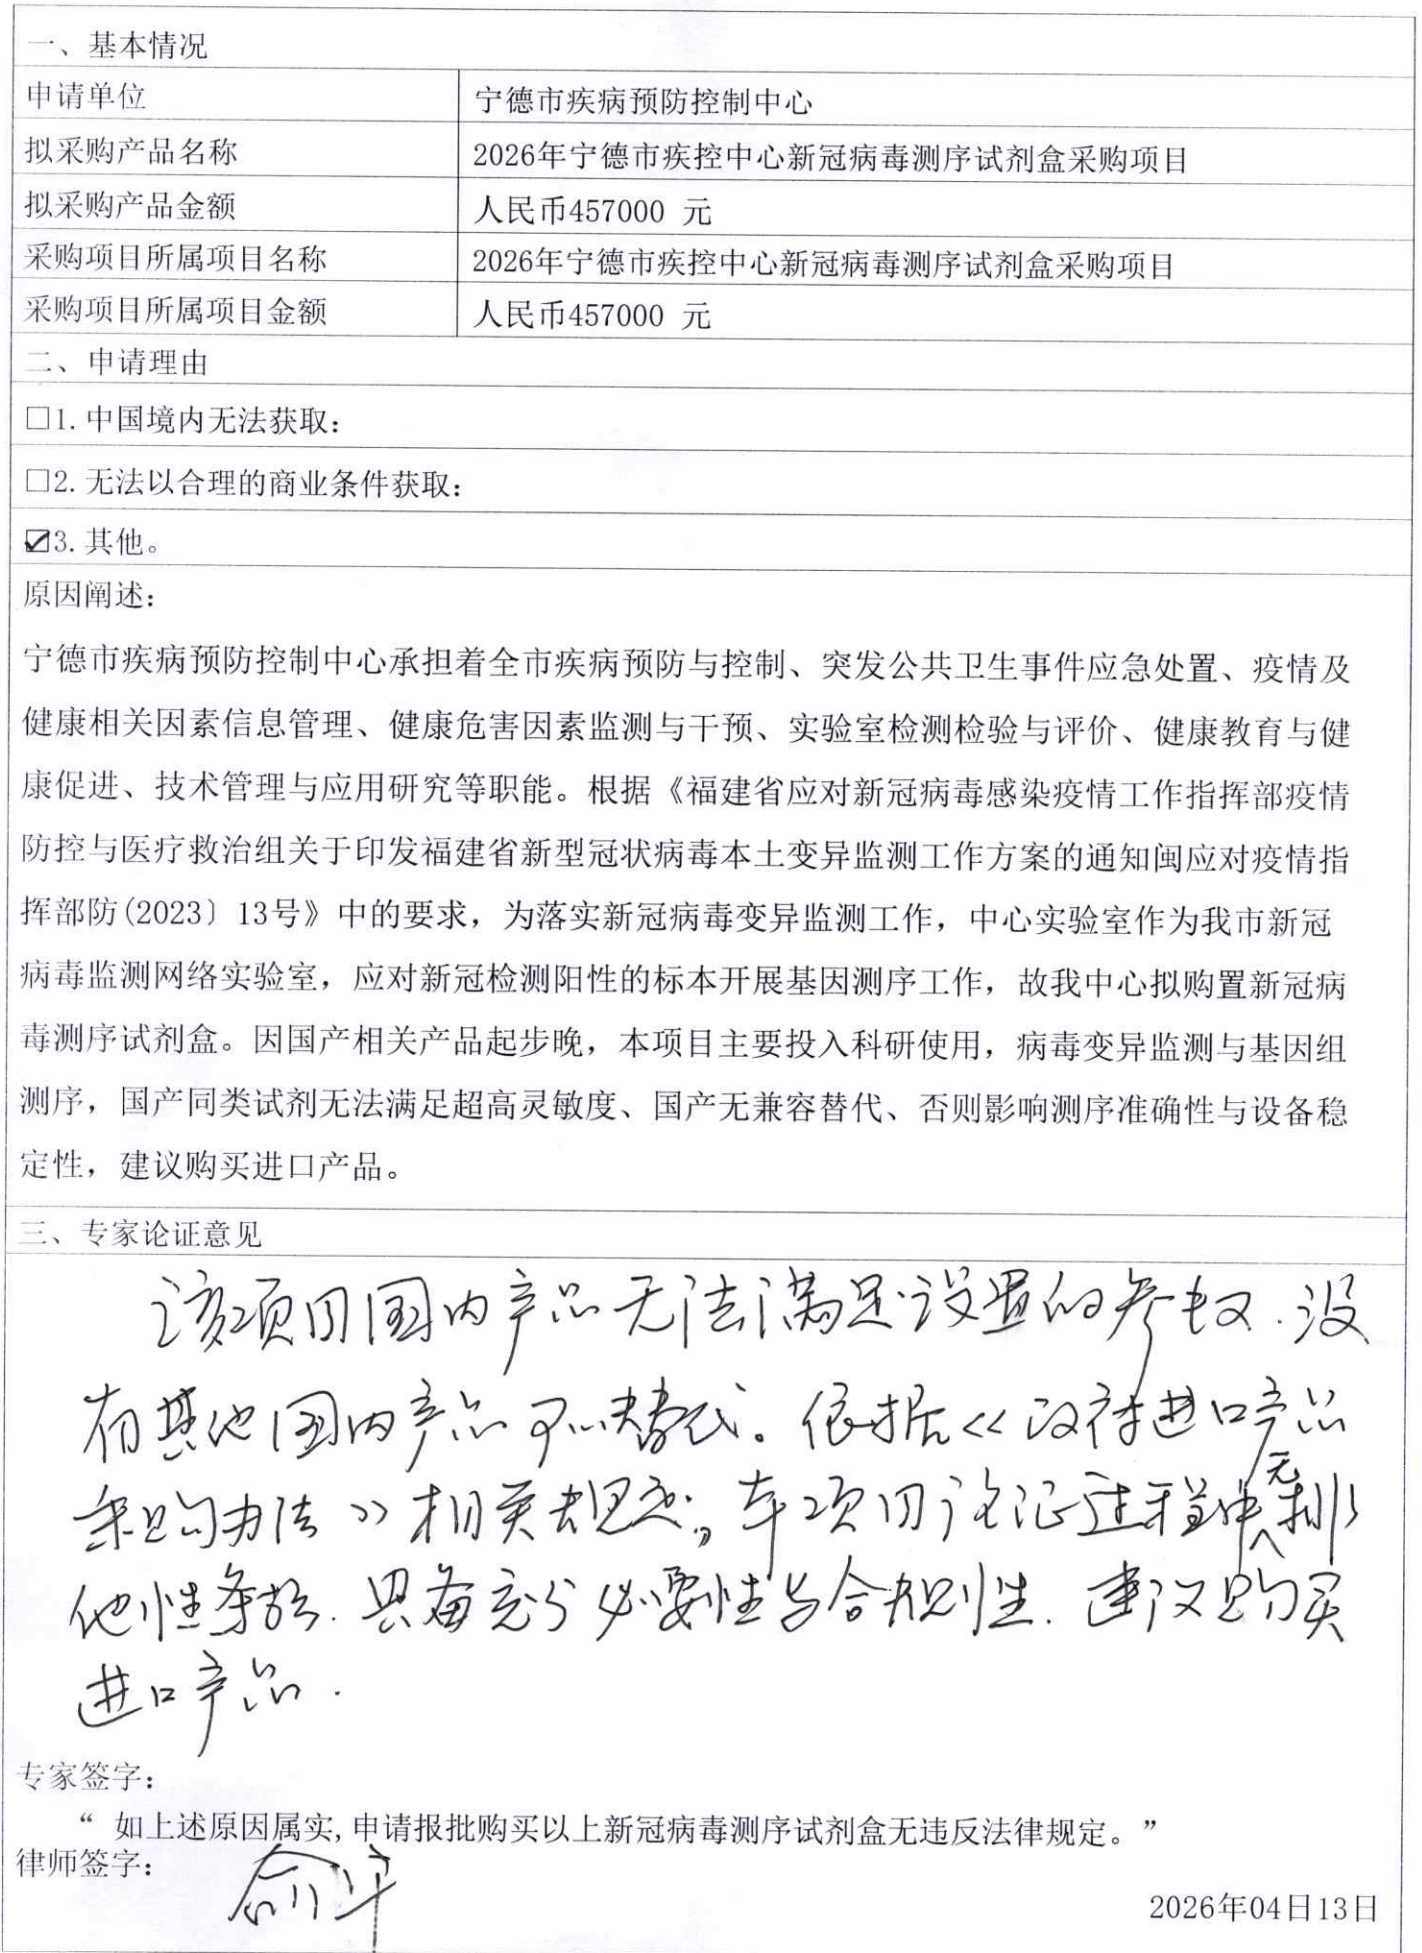 一、基本情况
申请单位
宁德市疾病预防控制中心
拟采购产品名称
2026年宁德市疾控中心新冠病毒测序试剂盒采购项目
拟采购产品金额
人民币457000 元
采购项目所属项目名称
2026年宁德市疾控中心新冠病毒测序试剂盒采购项目
采购项目所属项目金额
人民币457000 元
二、申请理由
□1.中国境内无法获取：
□2.无法以合理的商业条件获取：
☑3.其他。
原因阐述：
宁德市疾病预防控制中心承担着全市疾病预防与控制、突发公共卫生事件应急处置、疫情及
健康相关因素信息管理、健康危害因素监测与干预、实验室检测检验与评价、健康教育与健
康促进、技术管理与应用研究等职能。根据《福建省应对新冠病毒感染疫情工作指挥部疫情
防控与医疗救治组关于印发福建省新型冠状病毒本土变异监测工作方案的通知闽应对疫情指
挥部防(2023〕13号》中的要求，为落实新冠病毒变异监测工作，中心实验室作为我市新冠
病毒监测网络实验室，应对新冠检测阳性的标本开展基因测序工作，故我中心拟购置新冠病
毒测序试剂盒。因国产相关产品起步晚，本项目主要投入科研使用，病毒变异监测与基因组
测序，国产同类试剂无法满足超高灵敏度、国产无兼容替代、否则影响测序准确性与设备稳
定性，建议购买进口产品。
三、专家论证意见
该项目国内产品无法满足设置的参数.没
有其他国内产品可以替代。依据《政府进口产品
采购办法》相关规定，本项目论证过程中无排
他性条款.具备充分必要性与合规性.建议购买
进口产品.
专家签字：
“ 如上述原因属实,申请报批购买以上新冠病毒测序试剂盒无违反法律规定。”
律师签字：
2026年04月13日